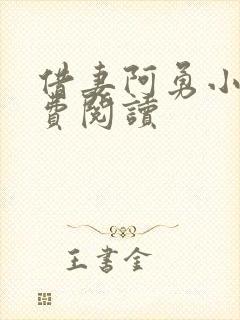 借妻阿勇小
費閱讀
王書金